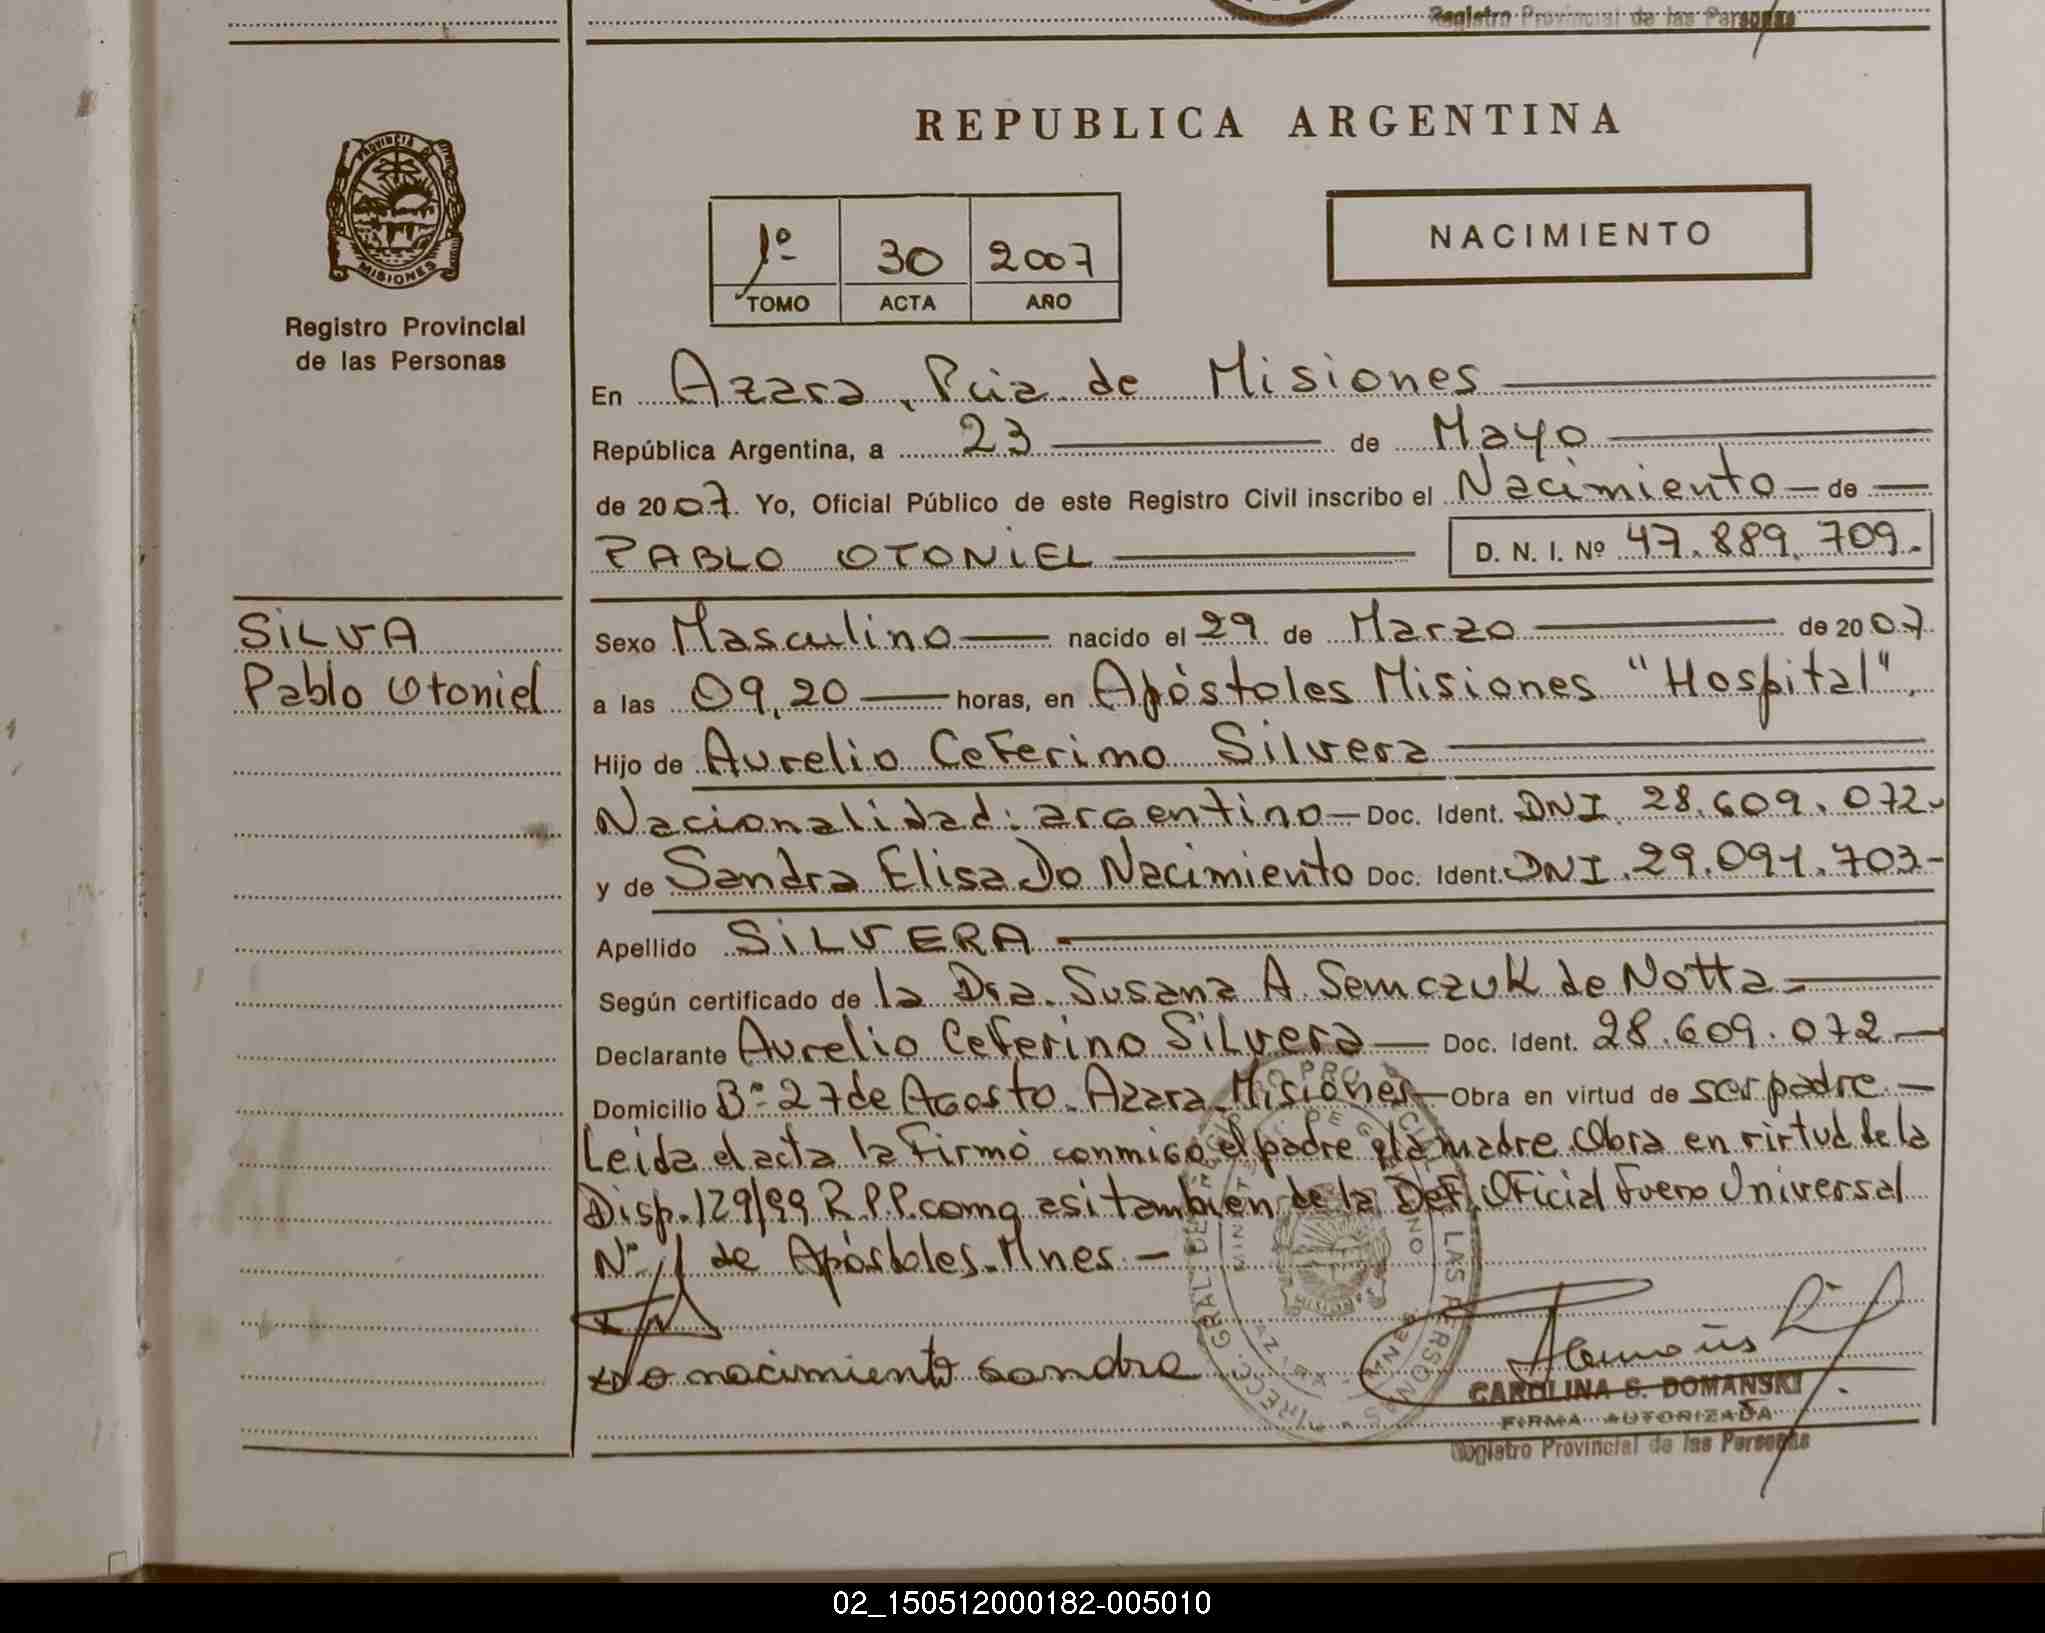 Registro Provincial de las Personas
REPUBLICA ARGENTINA
PROVINCIA DE
MISIONES
Registro Provincial
de las Personas
1º 30 2007
TOMO ACTA AÑO
NACIMIENTO
En Azara, Pcia. de Misiones
República Argentina, a 23 de Mayo
de 2007. Yo, Oficial Público de este Registro Civil inscribo el Nacimiento de
PABLO OTONIEL D. N. I. Nº 47.889.709.
SILVA
Pablo Otoniel
Sexo Masculino nacido el 29 de Marzo de 2007.
a las 09,20 horas, en Apóstoles Misiones "Hospital".
Hijo de Aurelio Ceferino Silvera
Nacionalidad: argentino Doc. Ident. DNI 28.609.072.
y de Sandra Elisa Do Nacimiento Doc. Ident. DNI. 29.091.703-
Apellido SILVERA
Según certificado de la Dra. Susana A. Semczuk de Notta
Declarante Aurelio Ceferino Silvera Doc. Ident. 28.609.072
Domicilio Bº 27 de Agosto. Azara. Misiones Obra en virtud de ser padre.
Leida el acta la firmó conmigo el padre y la madre. Obra en virtud de la
Disp. 129/99 R.P.P. como asi tambien de la Def. Oficial Fuero Universal
Nº 1 de Apóstoles. Mnes. -
Do nacimiento sandra
CAROLINA S. DOMANSKI
FIRMA AUTORIZADA
Registro Provincial de las Personas
02_150512000182-005010